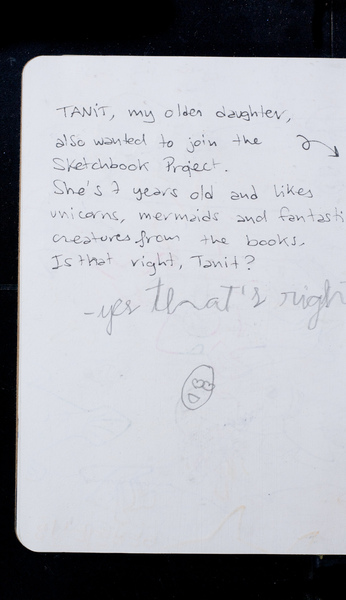 TANIT, my older daughter,
also wanted to join the
Sketchbook Project.
She's 7 years old and likes
unicorns, mermaids and fantasti
creatures from the books.
Is that right, Tanit?
-yes that's right